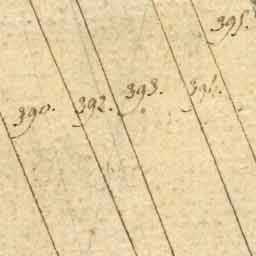 395.
393.
392.
390.